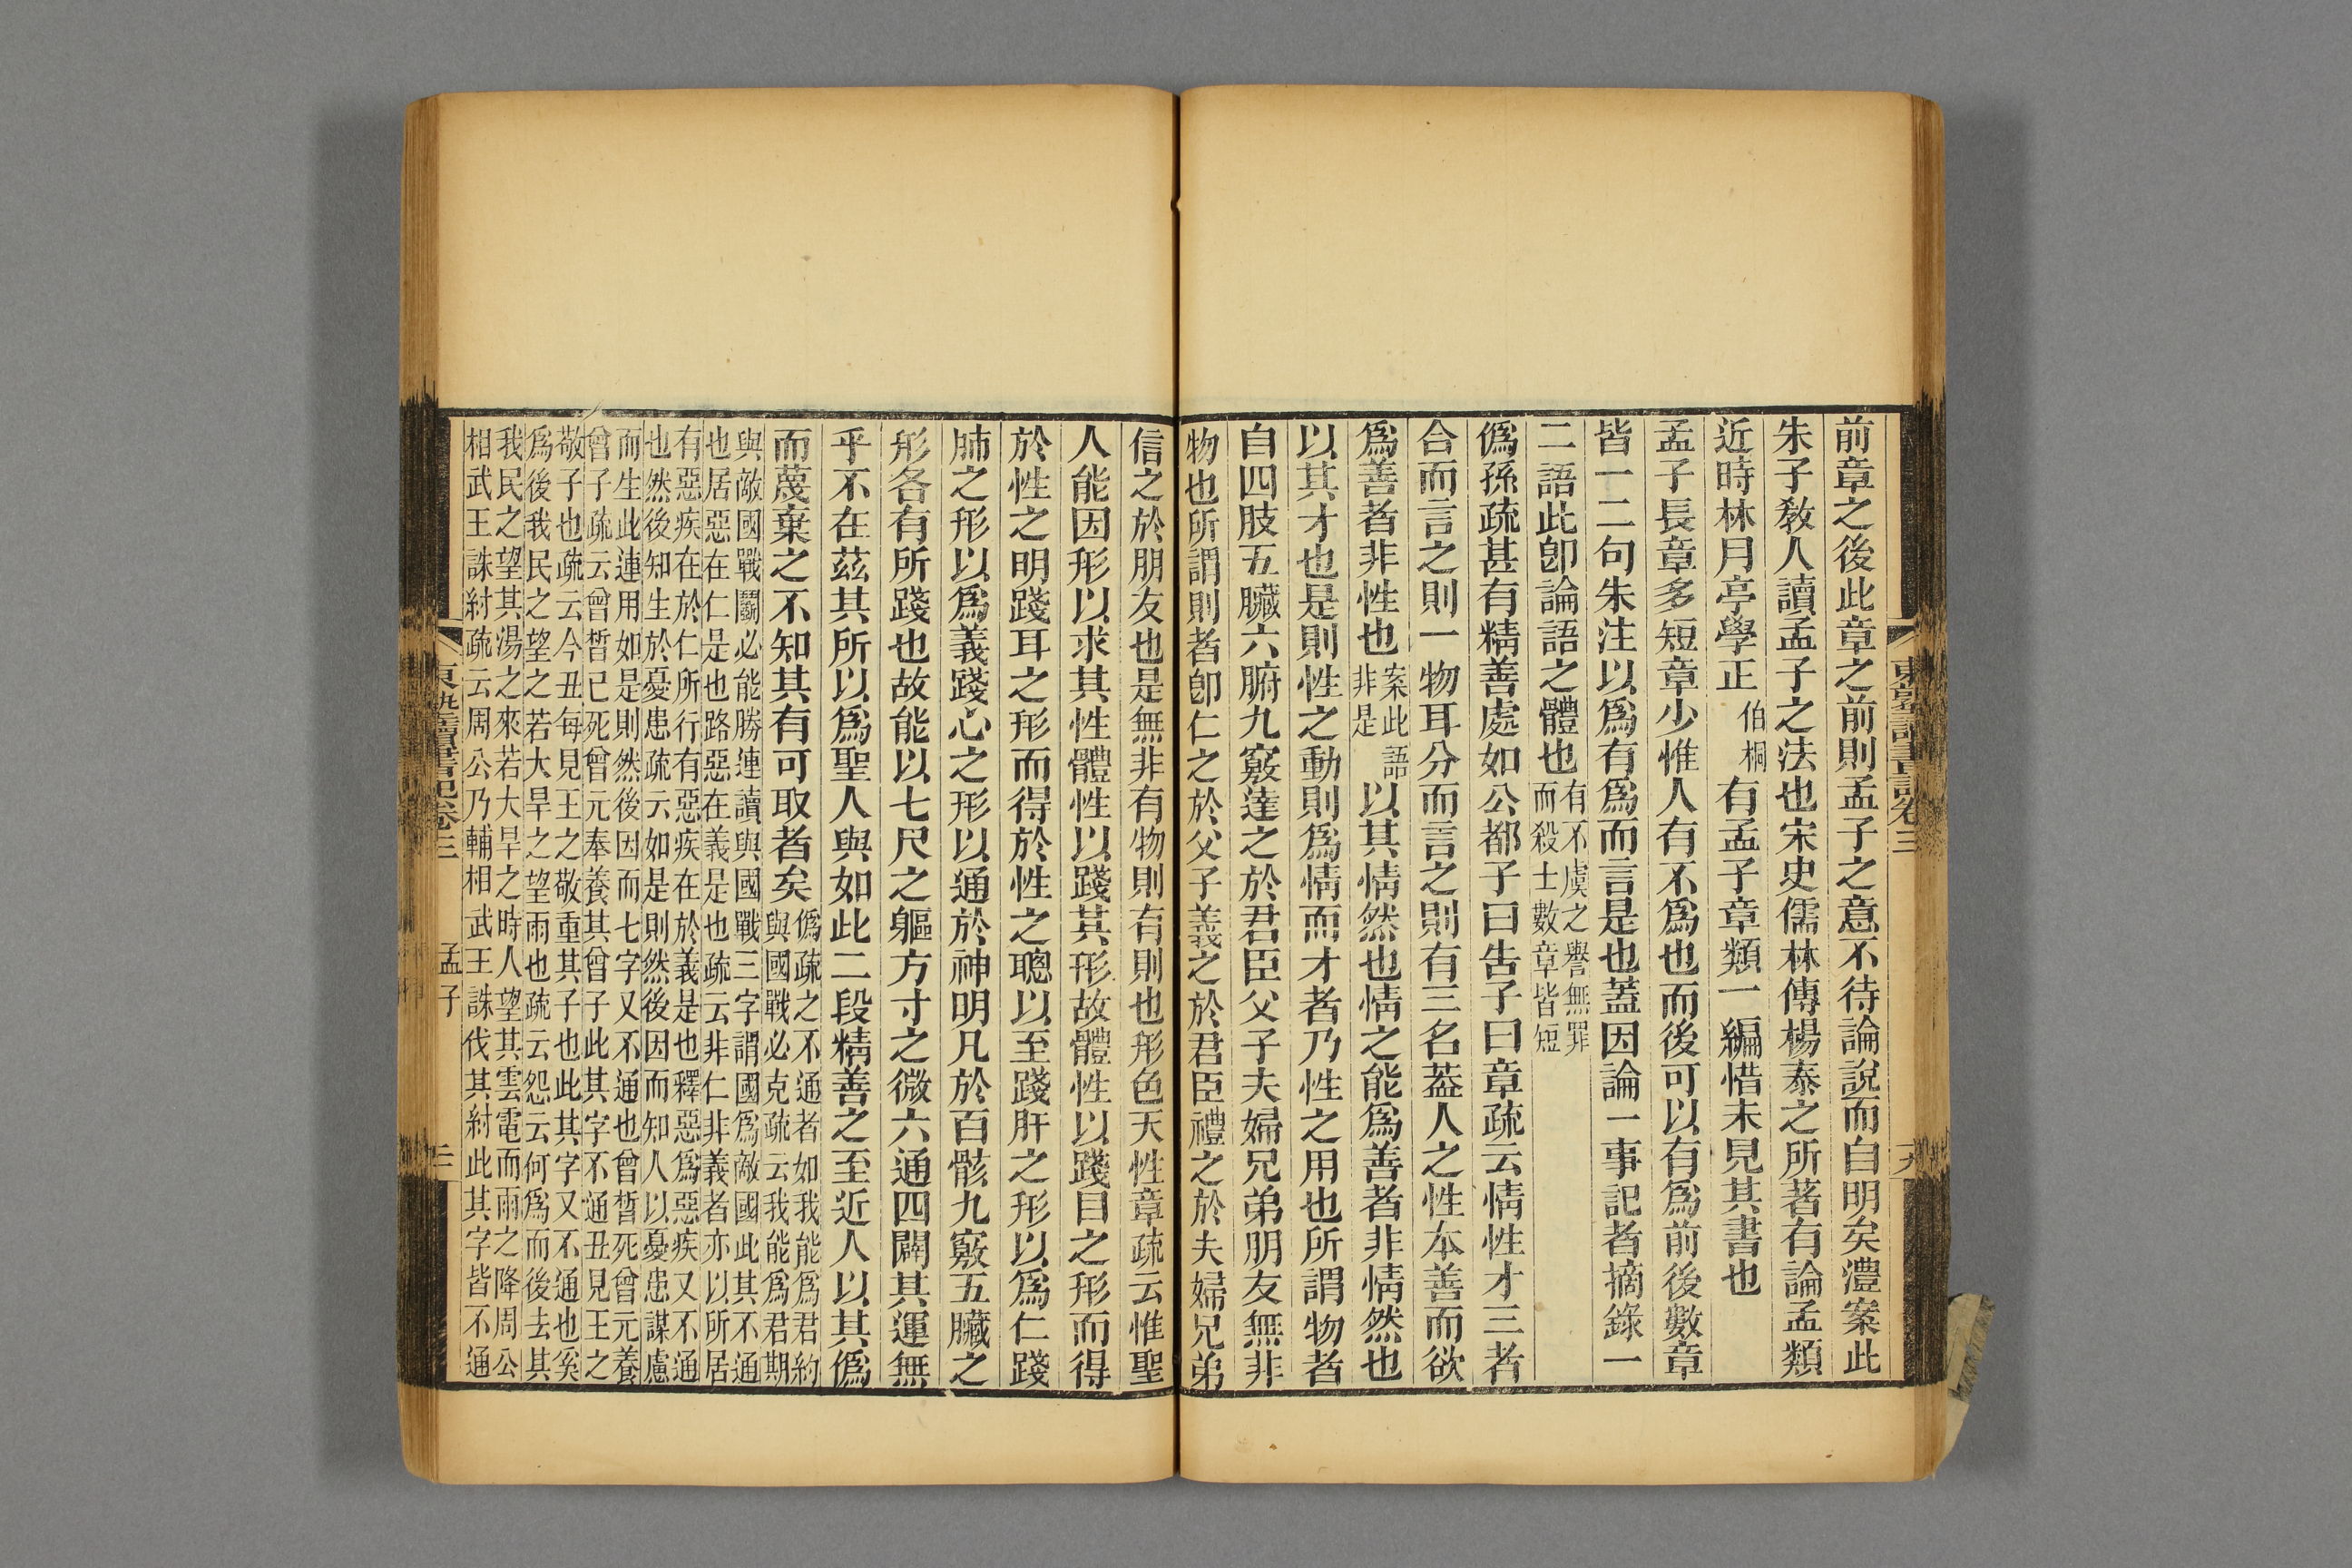 前章之後此章之前則孟子之意不待論說而自明矣澧案此
朱子教人讀孟子之法也宋史儒林傳楊泰之所著有論孟類
近時林月亭學正伯桐有孟子章類一編惜未見其書也
孟子長章多短章少惟人有不爲也而後可以有爲前後數章
皆一二句朱注以爲有爲而言是也蓋因論一事記者摘錄一
二語此卽論語之體也有不虞之譽無罪而殺士數章皆短
僞孫疏甚有精善處如公都子曰告子曰章疏云情性才三者
合而言之則一物耳分而言之則有三名葢人之性本善而欲
爲善者非性也案此語非是以其情然也情之能爲善者非情然也
以其才也是則性之動則爲情而才者乃性之用也所謂物者
自四肢五臟六腑九竅達之於君臣父子夫婦兄弟朋友無非
物也所謂則者卽仁之於父子義之於君臣禮之於夫婦兄弟
信之於朋友也是無非有物則有則也形色天性章疏云惟聖
人能因形以求其性體性以踐其形故體性以踐目之形而得
於性之明踐耳之形而得於性之聰以至踐肝之形以爲仁踐
肺之形以爲義踐心之形以通於神明凡於百骸九竅五臟之
形各有所踐也故能以七尺之軀方寸之微六通四闢其運無
乎不在茲其所以爲聖人與如此二段精善之至近人以其僞
而蔑棄之不知其有可取者矣僞疏之不通者如我能爲君約
與國戰必克疏云我能爲君期
與敵國戰鬭必能勝連讀與國戰三字謂國爲敵國此其不通
也居惡在仁是也路惡在義是也疏云非仁非義者亦以所居
有惡疾在於仁所行有惡疾在於義是也釋惡爲惡疾又不通
也然後知生於憂患疏云如是則然後因而知人以憂患謀慮
而生此連用如是則然後因而七字又不通也曾晳死曾元養
曾子疏云曾晳已死曾元奉養其曾子此其字不通丑見王之
敬子也疏云今丑每見王之敬重其子也此其字又不通也奚
爲後我民之望之若大旱之望雨也疏云怨云何爲而後去其
我民之望其湯之來若大旱之時人望其雲電而雨之降周公
相武王誅紂疏云周公乃輔相武王誅伐其紂此其字皆不通
東塾讀書記卷三
孟子